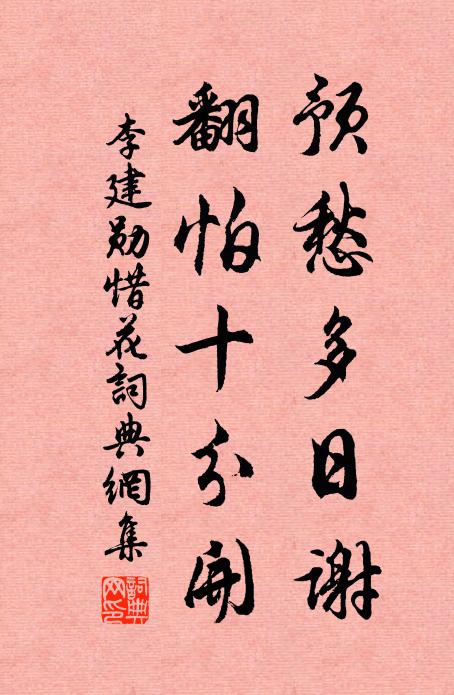 预愁多日謝
翻怕十分開
李建勋惜花詞典網集
詞典
网印